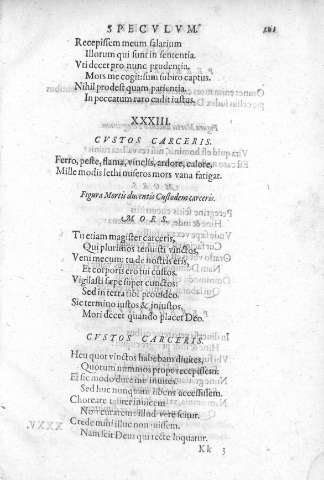 SPECVLVM.
Recepissem meum salarium
Illorum qui sunt in sententia.
Vti decet pro nunc prudentia,
Mors me cogit: sum subito captus.
Nihil prodest quam patientia.
In peccatum raro cadit iustus.
XXXIII.
CVSTOS CARCERIS.
Ferro, peste, flama, vinclis, ardore, calore,
Mille modis lethi miseros mors vana fatigat.
Figura Mortis ducentis Custodem carceris.
MORS.
Tu etiam magister carceris,
Qui plurimos tenuisti vinctos,
Veni mecum: tu de nostris eris,
Et corporis ero tui custos.
Vigilasti sæpe super cunctos:
Sed in terra tibi prouideo.
Sic termino iustos & iniustos,
Mori decet quando placet Deo.
CVSTOS CARCERIS.
Heu quot vinctos habebam diuites,
Quotum nummos prope recepissem:
Et sic modo duc me inuites.
Sed huc nunquam libens accessissem.
Choreare taliter
Non curarem: illud vere scitur.
Crede mihi illuc non iuissem.
Nam scit Deus qui recte loquatur.
Kk 3